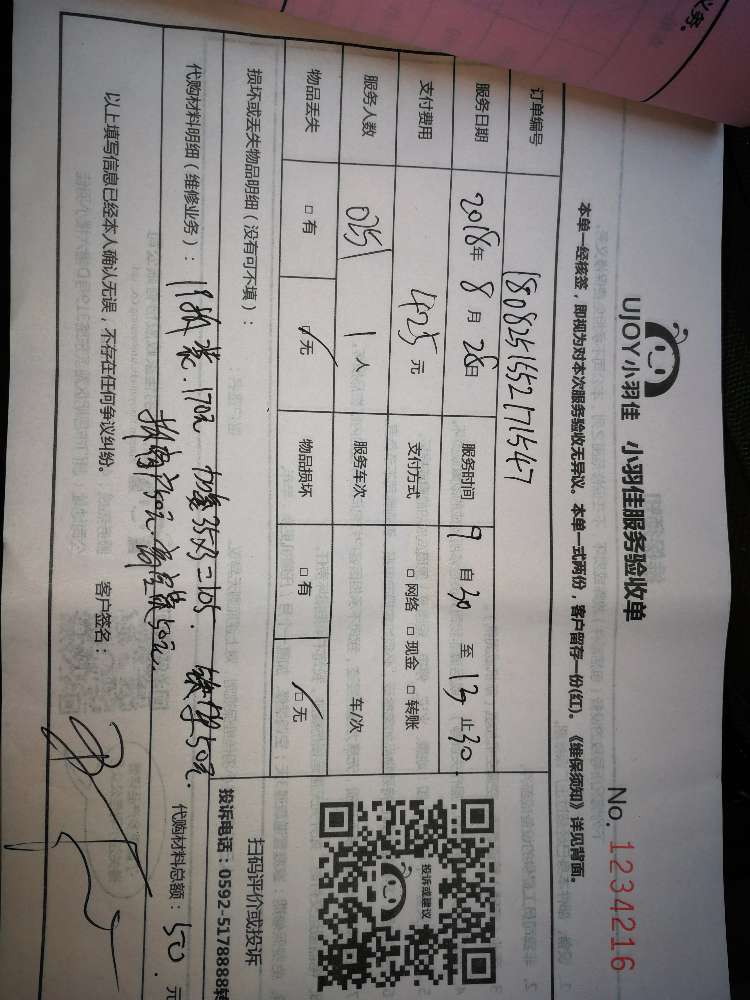 UJOY小羽佳 小羽佳服务验收单
No. 1234216
本单一经核签，即视为对本次服务验收无异议。本单一式两份，客户留存一份(红)。《维保须知》详见背面。
订单编号 1808251552171547
服务日期 2018年 8月 28日 服务时间 9 自 30 至 13 止 30
支付费用 425元 支付方式 □网络 □现金 □转账
服务人数 1人 服务车次 车/次
物品丢失 □有 □无 物品损坏 □有 □无
投诉或建议
扫码评价或投诉
投诉电话：0592-5178888转
损坏或丢失物品明细（没有可不填）：
代购材料明细（维修业务）： 170元 35x3=105. 50元.
50元 50元
代购材料总额： 50元
以上填写信息已经本人确认无误，不存在任何争议纠纷。 客户签名：